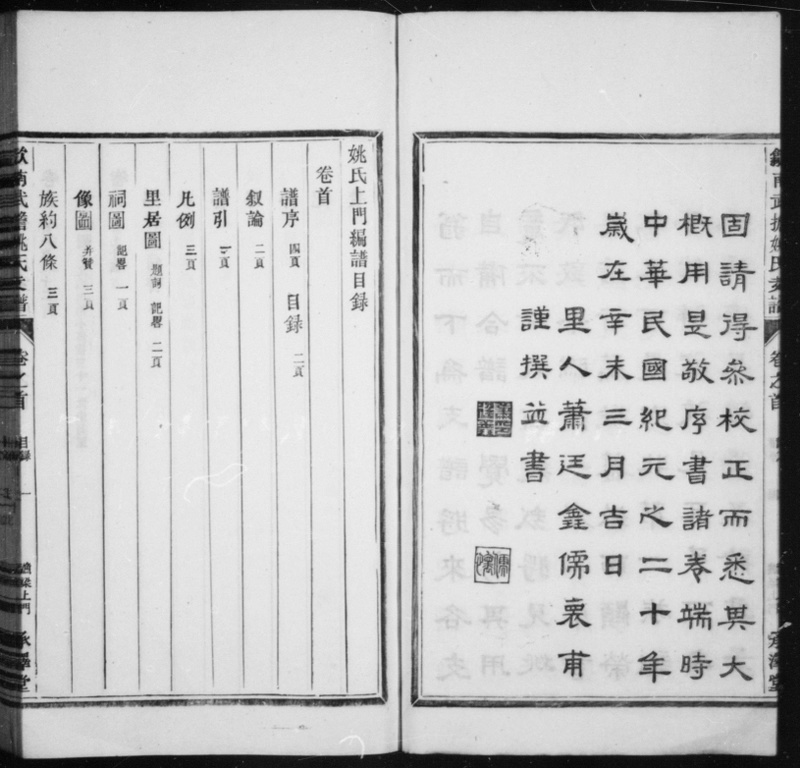 固請得參校正而悉其大
概用是敬序書諸卷端時
中華民國紀元之二十年
歲在辛未三月吉日
里人蕭廷鑫儒裏甫
謹撰並書
姚氏上門編譜目録
卷首
譜序 四頁 目録 二頁
叙論 二頁
譜引 一頁
凡例 三頁
里居圖 題詞 記畧 二頁
祠圖 記畧 一頁
像圖 并贊 三頁
族約八條 三頁
卷之首
目録
一
上門
承澤堂